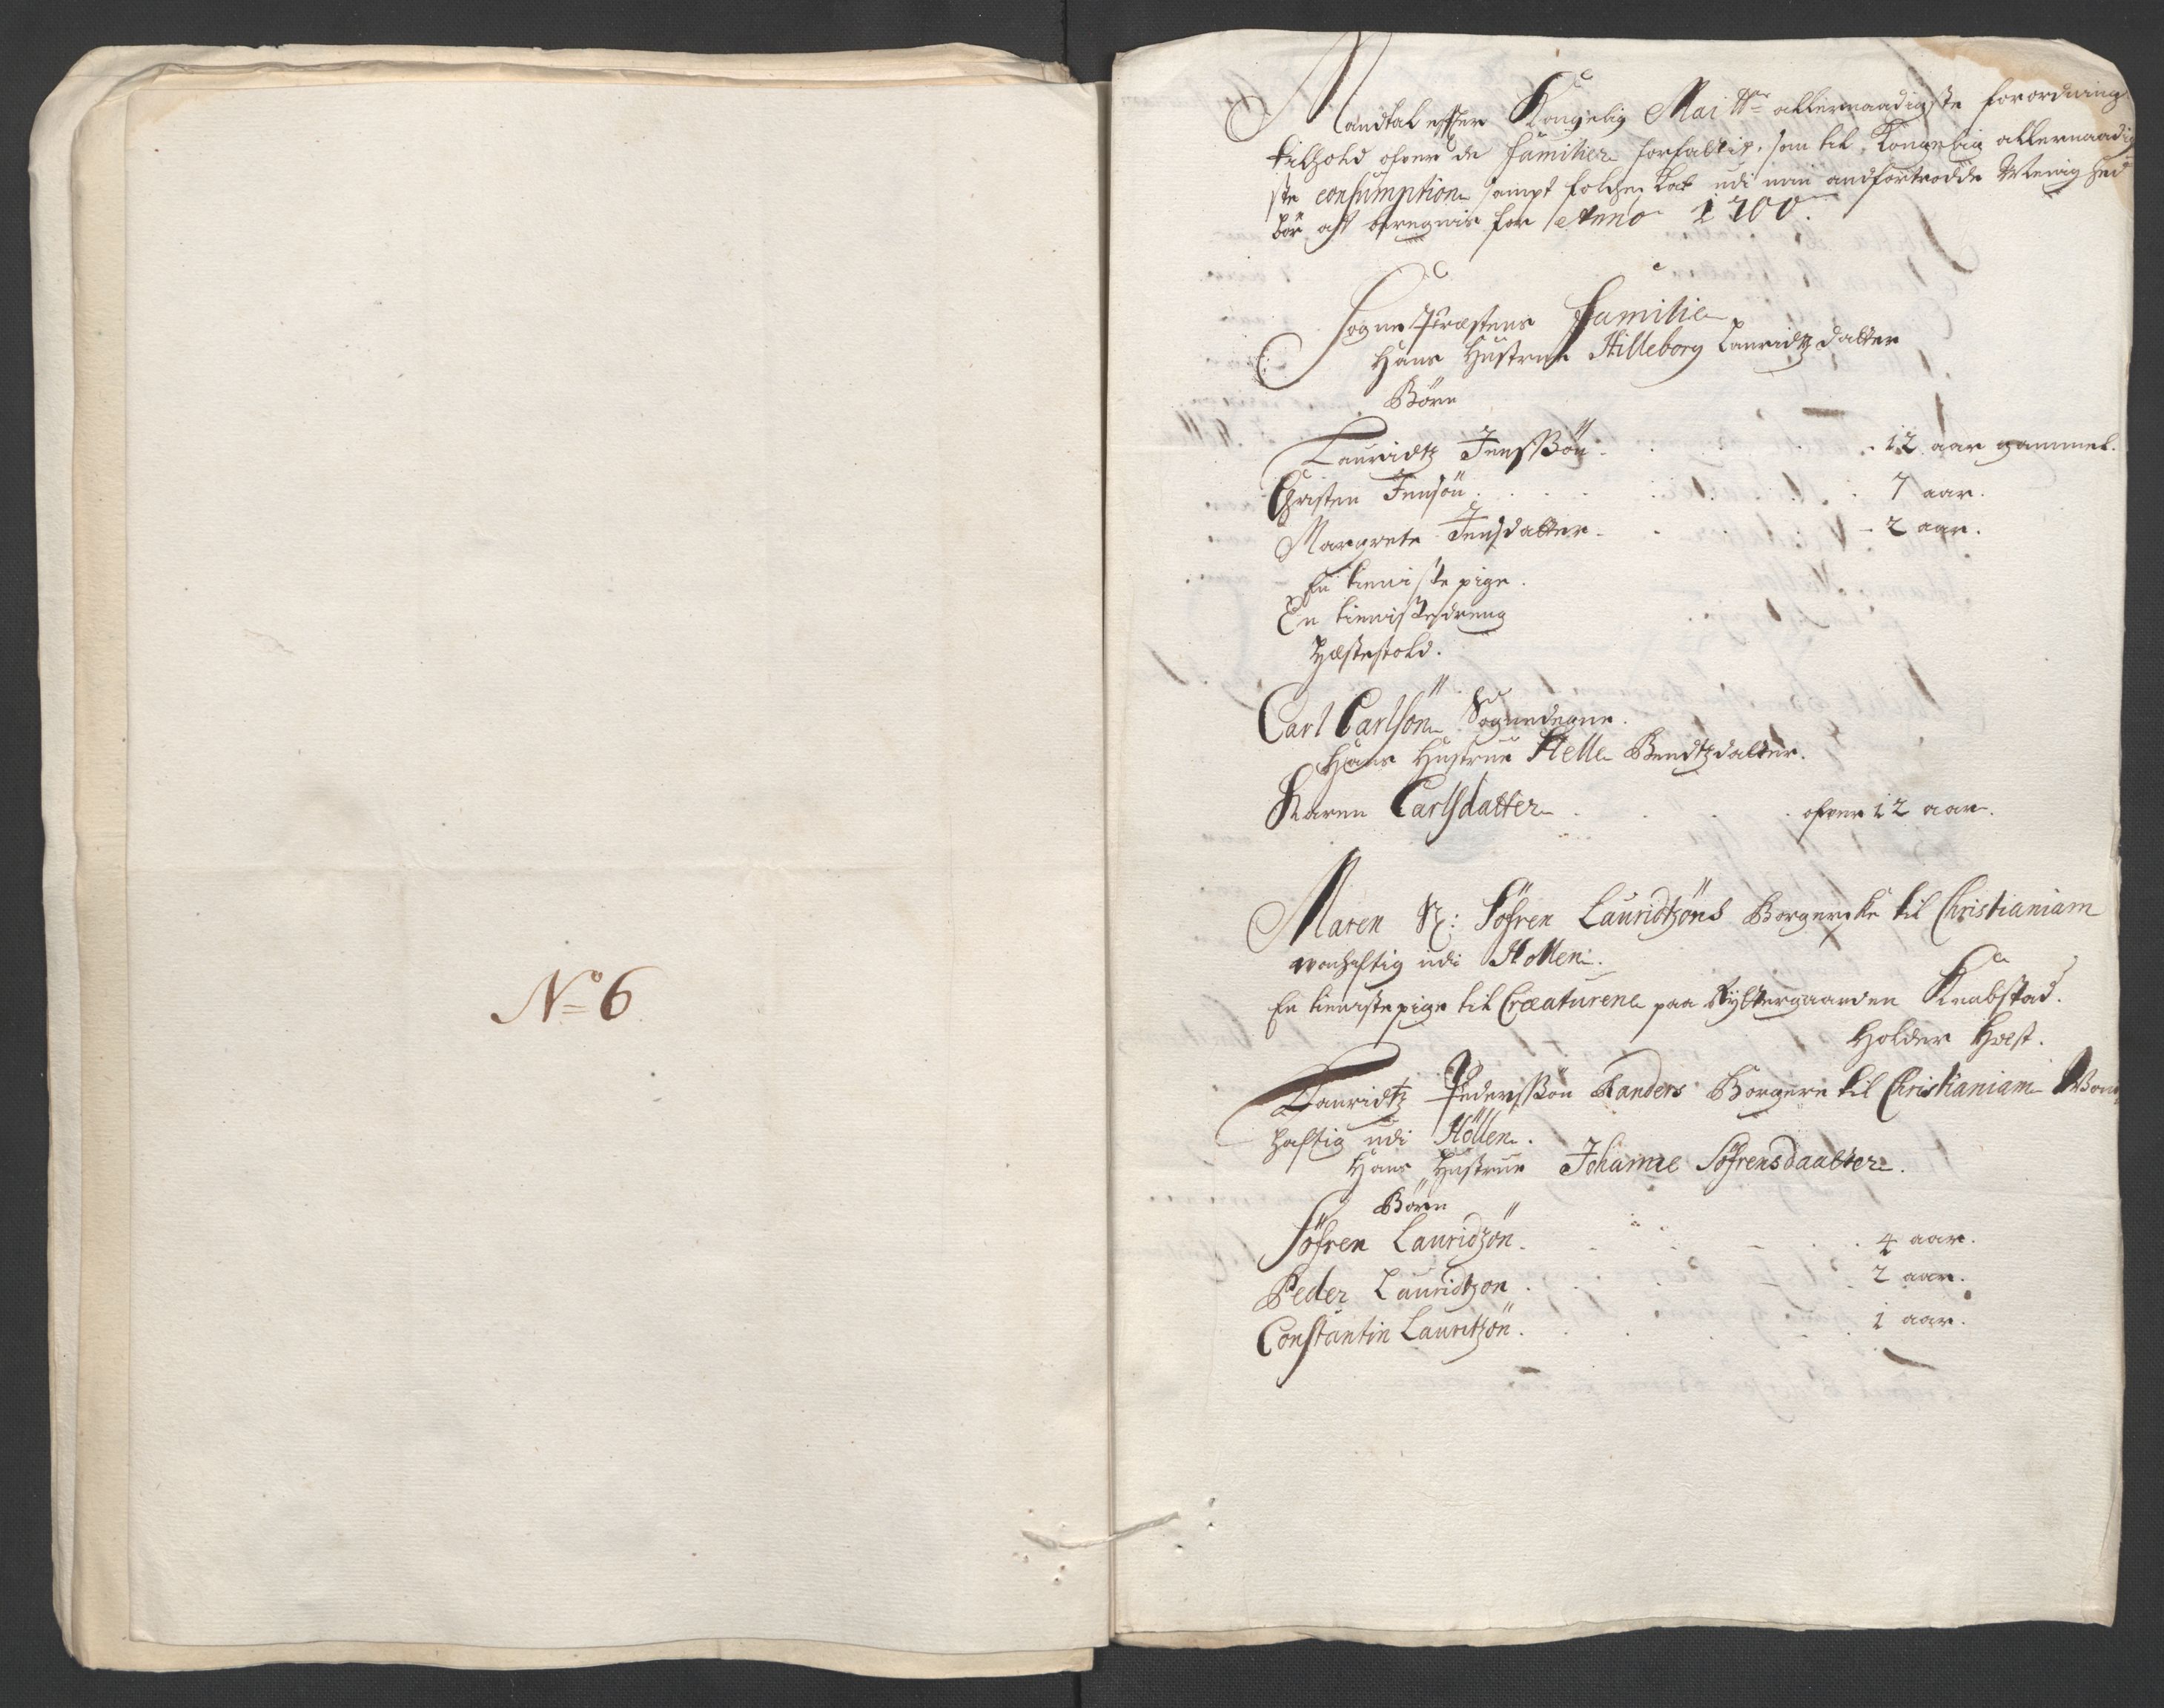 No 6
Mandtal effter Kongelig Maitts allernaadigste forordning
tilhold ofver de familier forfattit, som til Kongelig allernaadig
ste consumption sampt folche skat udi min andfortrodde Menighed
bör att beregnis for Anno 1700.
Sogne Præstens Familie
Hans Hustrue Hilleborg Lauridtzdatter
Börn
Lauridtz Jenssön 12 aar gammel.
Christen Jensön 7 aar.
Margrete Jensdatter 2 aar.
En tieniste pige.
En tienistedreng
Hæstehold.
Carl Carlsön Sognedegn.
Hans Hustrue Helle Bendtzdatter.
Karen Carlsdatter ofver 12 aar.
Maren Sl: Söfren Lauridtzöns Borgerske til Christianiam
wonhafftig udi Hollen.
En tienistepige til Creaturene paa Ryttergaarden Knabstad.
Holder Hæst.
Lauridtz Pederssön Randers Borgere til Christianiam Won-
hafftig udi Höllen.
Hans Hustrue Johanne Söfrensdaatter.
Börn
Söfren Lauridzön 4 aar.
Peder Lauridtzon 2 aar.
Constantin Lauritzön 1 aar.